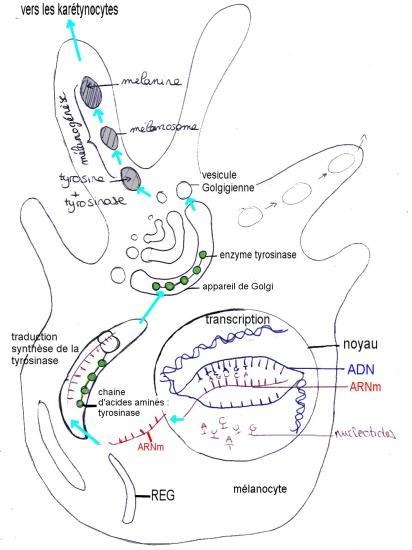 vers les karétynocytes
mélanine
mélanosome
mélanogénèse
tyrosine
+
tyrosinase
vesicule
Golgigienne
enzyme tyrosinase
appareil de Golgi
transcription
noyau
traduction
synthèse de la
tyrosinase
ADN
ARNm
chaine
d'acides aminés :
tyrosinase
nucléotides
ARNm
REG
mélanocyte